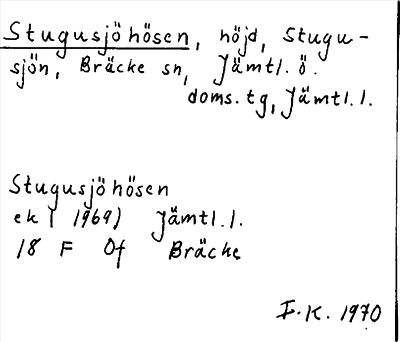 Stugusjöhösen, höjd, Stugu-
sjön, Bräcke sn, Jämtl. ö.
doms. tg, Jämtl. l.
Stugusjöhösen
ek ( 1969) Jämtl. l.
18 F Of Bräcke
I.K. 1970